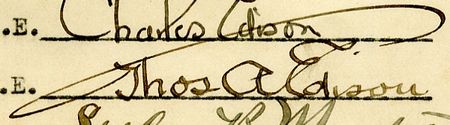 .E. Charles Edison
.E. Thos A Edison